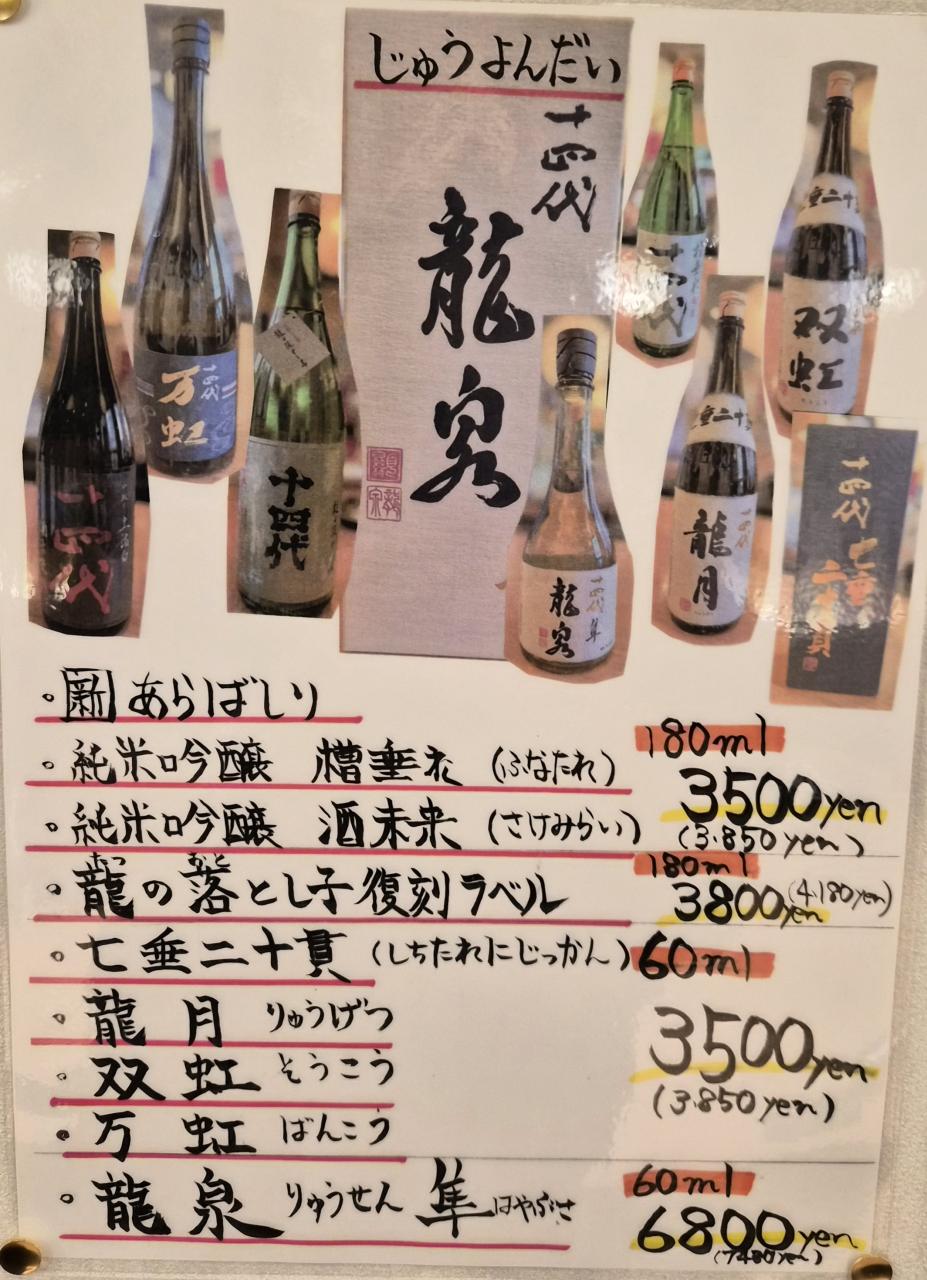 じゅうよんだい
十四代
龍泉
十四代
万虹
十四代
十四代
十四代
双虹
十四代
龍月
十四代
七垂二十貫
十四代 隼
龍泉
・新 あらばしり
・純米吟醸 槽垂れ (ふなたれ) 180ml
3500yen
・純米吟醸 酒未来 (さけみらい) (3.850yen)
・龍の落とし子復刻ラベル 180ml
3800yen (4.180yen)
・七垂二十貫 (しちたれにじっかん) 60ml
・龍月 りゅうげつ 3500yen
・双虹 そうこう (3.850yen)
・万虹 ばんこう
・龍泉 りゅうせん 隼 はやぶさ 60ml
6800yen
(7480yen)